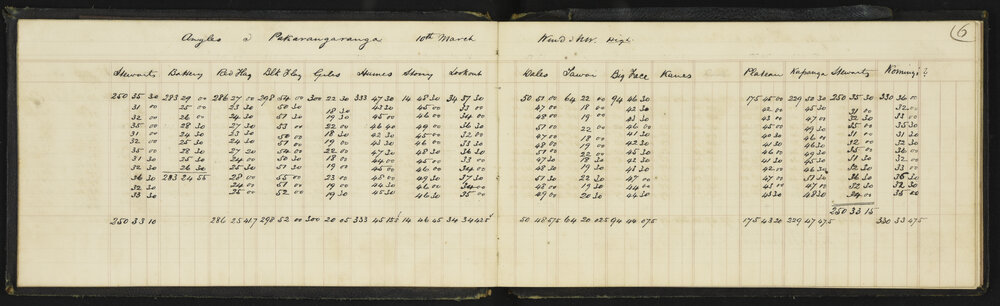 Angles @ Pakarangaranga 10th March Wind : NW. High. 6
Stewarts Battery Red Flag Blk Flag Giles Humes Stony Lookout Dales Tawar Big Face Kanes Plateau Kapanga Stewarts
250 35 30 283 29 00 286 27 00 298 54 00 300 22 30 333 47 30 14 48 30 34 37 30 50 51 00 64 22 00 94 46 30 175 45 00 229 52 30 250 35 30 330 36 00
31 00 25 00 23 30 50 30 18 30 43 30 45 00 33 00 47 00 18 00 42 00 42 00 45 30 31 00 32 00
32 00 26 00 24 30 51 30 19 30 45 00 46 00 34 00 48 00 19 00 43 30 43 00 47 00 32 00 33 30
35 00 28 30 27 30 53 00 22 00 46 40 49 00 36 30 51 00 22 00 46 00 45 00 49 30 35 00 35 30
31 00 24 30 23 30 50 00 18 30 43 30 45 00 32 00 47 00 18 00 41 30 40 30 45 30 31 00 31 30
32 00 25 30 24 30 51 00 19 00 43 30 46 00 33 30 48 00 19 00 42 30 41 30 46 30 32 00 32 30
35 00 28 30 27 30 54 00 22 00 47 30 48 30 36 30 51 00 22 00 45 30 44 00 49 00 35 30 36 00
31 30 25 30 24 00 50 30 18 00 44 00 45 00 33 00 47 30 18 30 42 00 41 30 45 30 31 30 32 00
32 30 26 30 25 30 51 30 19 00 45 00 46 00 34 00 48 30 19 30 43 30 42 00 46 30 32 30 33 00
36 30 283 24 55 28 00 55 00 23 00 45 00 49 30 37 30 51 30 22 00 46 00 47 00 51 30 36 30 36 30
32 30 24 00 51 00 19 00 44 30 46 00 34 00 48 00 19 00 44 00 43 00 47 00 32 30 32 30
33 30 25 00 52 00 19 30 45 30 46 30 35 00 49 00 20 30 44 30 43 30 48 30 34 00 35 00
250 33 15
250 33 10 286 25 417 298 52 00 300 20 05 14 46 45 34 34 425 50 48 575 64 20 025 94 44 075 175 43 20 229 47 475 330 33 475